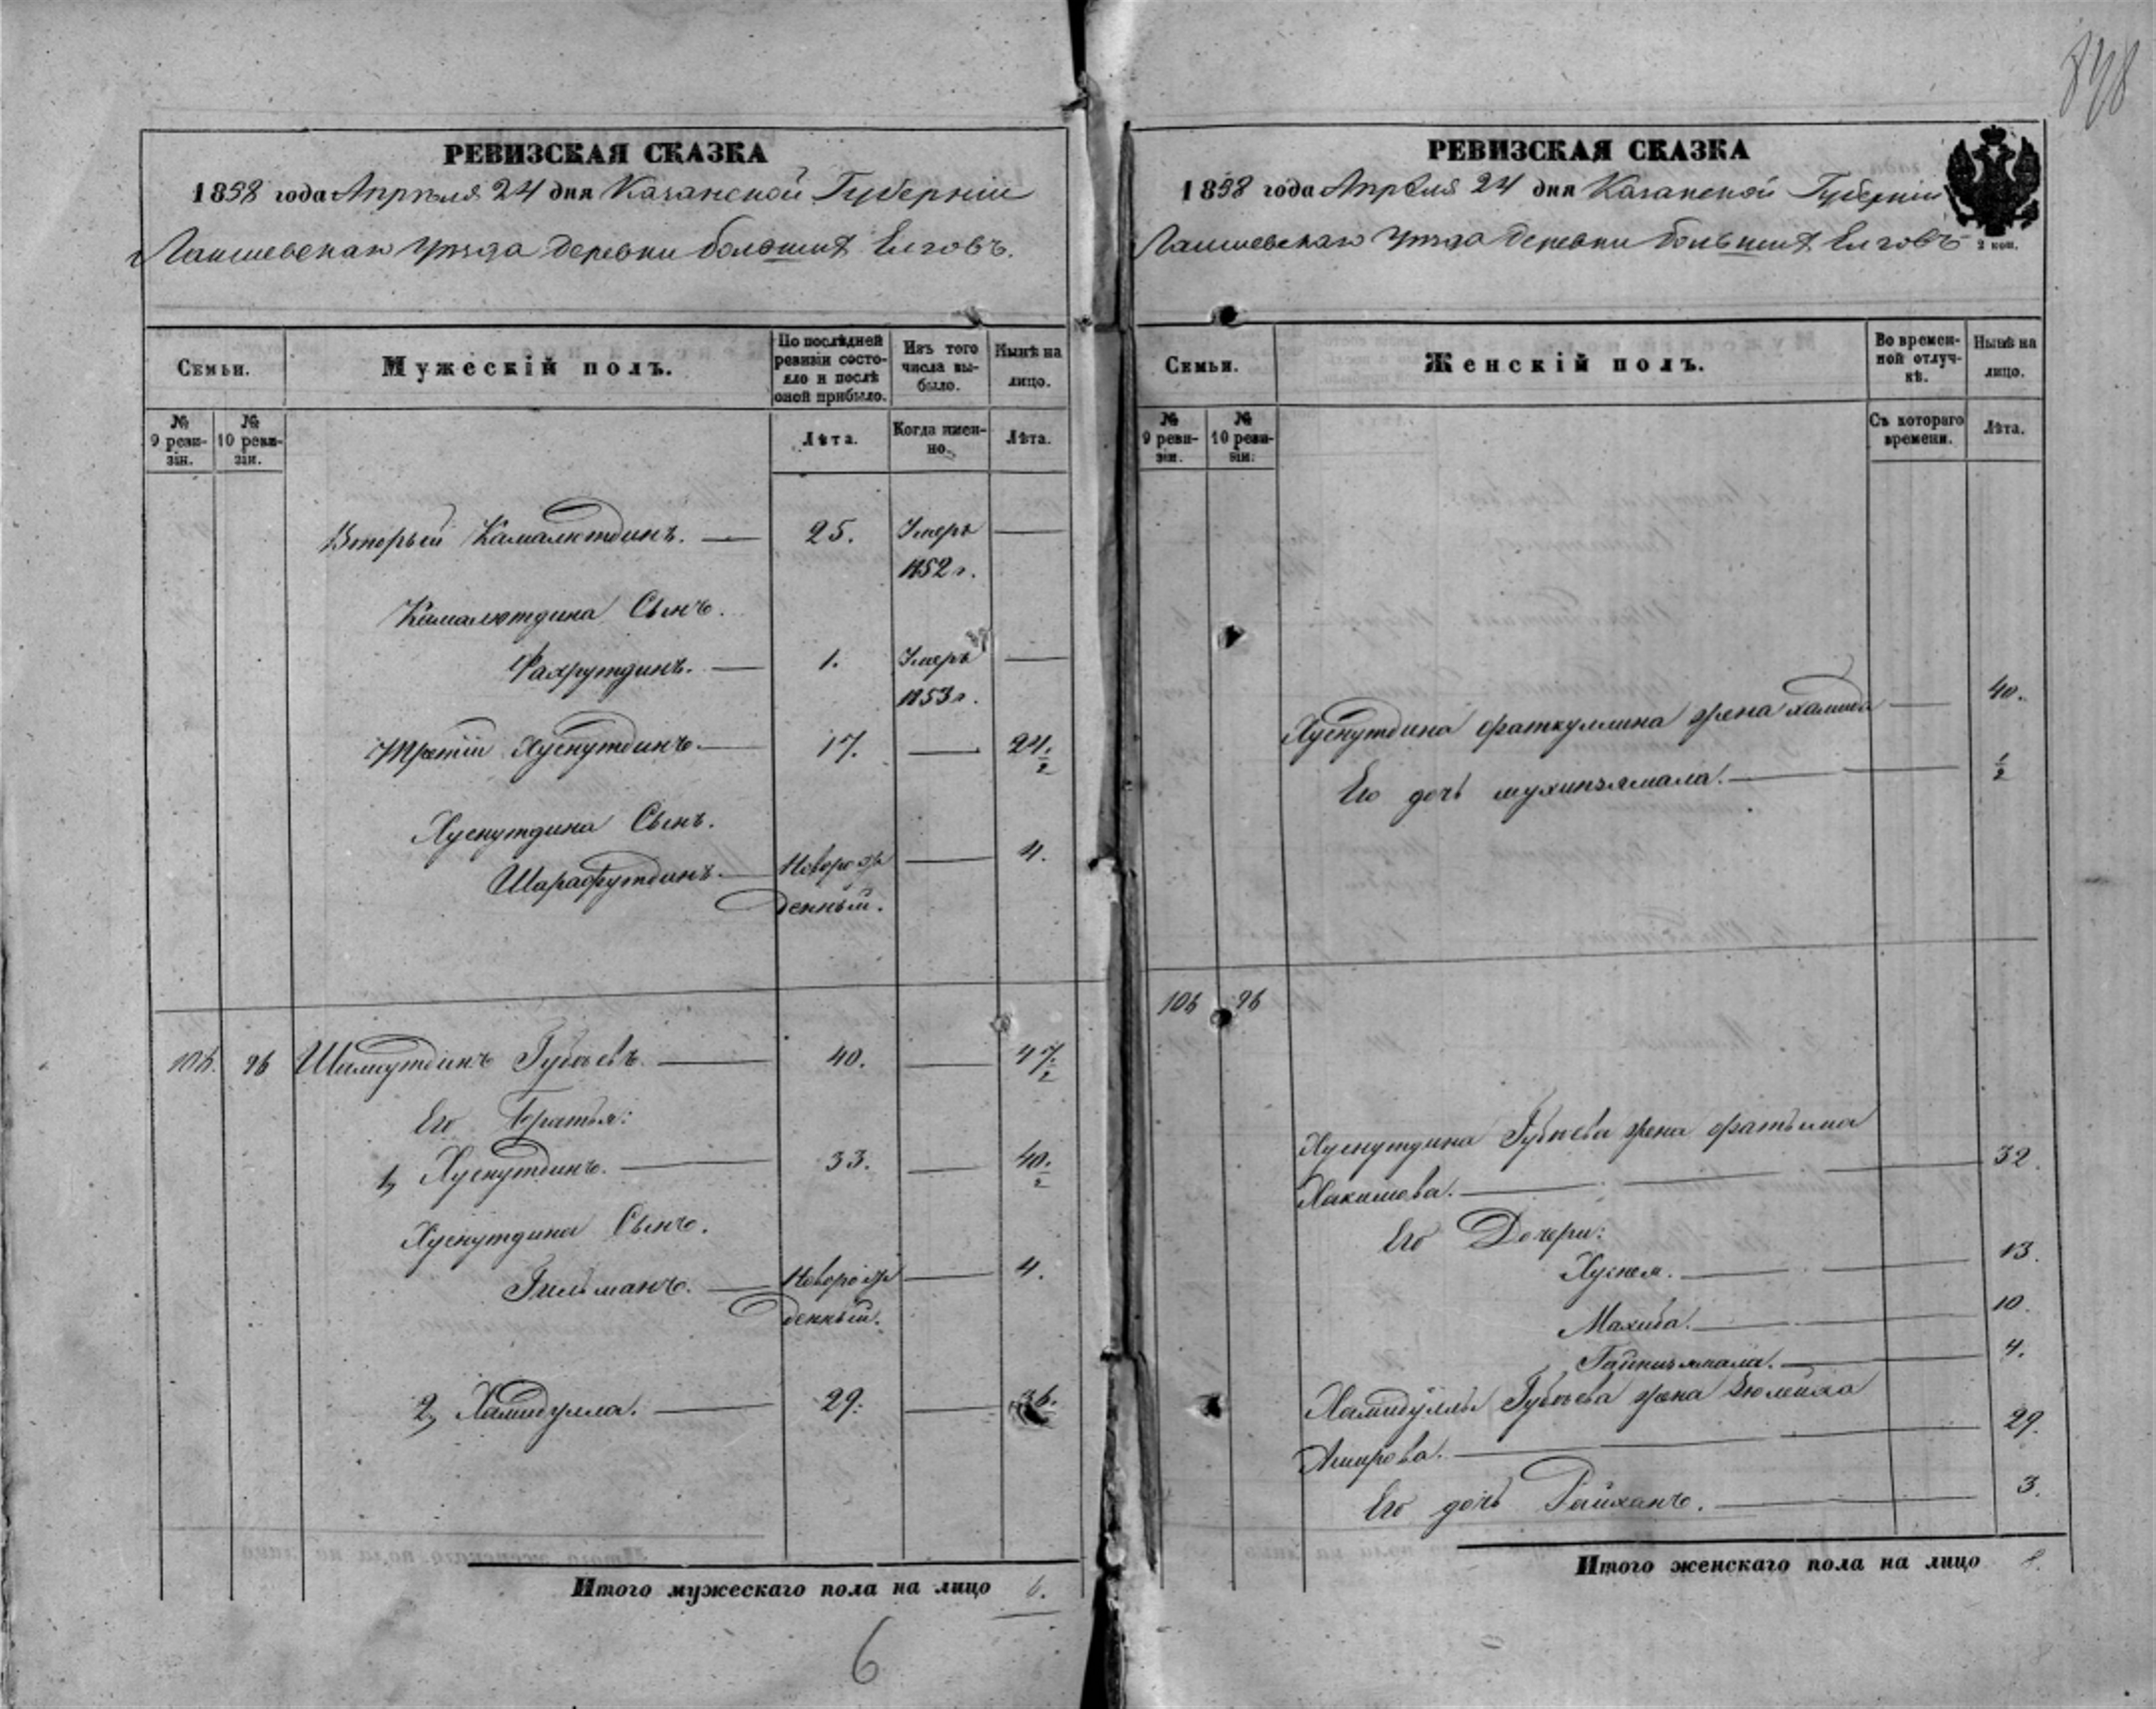 848
РЕВИЗСКАЯ СКАЗКА
1858 года Апреля 24 дня Казанской Губернии
Лаишевскаго уезда деревни больших Елговъ.
Семьи.
Мужескій полъ.
По послѣдней ревизіи состояло и послѣ оной прибыло.
Изъ того числа выбыло.
Нынѣ на лицо.
№ 9 ревизіи.
№ 10 ревизіи.
Лѣта.
Когда именно.
Лѣта.
Вторый Камалютдинъ. — 25. Умеръ —
1852 г.
Камалютдина Сынъ.
Фахрутдинъ. — 1. Умеръ —
1853 г.
Третій Хуснутдинъ. — 17. — 24 1/2
Хуснутдина Сынъ.
Шарафутдинъ. —Новорож — 4.
денный.
106. 96 Шамсутдинъ Губеевъ. — 40. — 47 1/2
Его братья:
1, Хуснутдинъ. — 33. — 40 1/2
Хуснутдина Сынъ.
Гильманъ. — Новорож — 4.
денный.
2, Хамидулла. — 29. — 36.
Итого мужескаго пола на лицо 6.
6
РЕВИЗСКАЯ СКАЗКА
1858 года Апреля 24 дня Казанской Губерніи
2 коп.
Лаишевскаго уезда деревни большихъ Елговъ
Семьи.
Женскій полъ.
Во временной отлучкѣ.
Нынѣ на лицо.
№ 9 ревизіи.
№ 10 ревизіи.
Съ котораго времени.
Лѣта.
Хуснутдина Фаткуллина жена — 40.
Его дочь — 1/2
106 96
Хуснутдина Губеева жена Фатьима
Хакимова. — 32.
Его Дочери:
Хуснем. — 13.
Махиба. — 10.
— 4.
Хамидуллы Губеева жена Зюлейха
Амирова. — 29.
Его дочь Райханъ. — 3.
Итого женскаго пола на лицо 8.